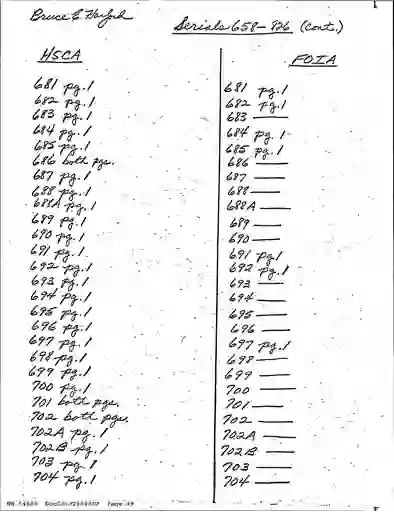 Bruce E.
Serials 658-826 (cont.)
HSCA
681 pg. 1
682 pg. 1
683 pg. 1
684 pg. 1
685 pg. 1
686 both pgs.
687 pg. 1
688 pg. 1
688A pg. 1
689 pg. 1
690 pg. 1
691 pg. 1
692 pg. 1
693 pg. 1
694 pg. 1
695 pg. 1
696 pg. 1
697 pg. 1
698 pg. 1
699 pg. 1
700 pg. 1
701 both pgs.
702 both pgs.
702A pg. 1
702B pg. 1
703 pg. 1
704 pg. 1
FOIA
681 pg. 1
682 pg. 1
683 —
684 pg. 1
685 pg. 1
686 —
687 —
688 —
688A —
689 —
690 —
691 pg. 1
692 pg. 1
693 —
694 —
695 —
696 —
697 pg. 1
698 —
699 —
700 —
701 —
702 —
702A —
702B —
703 —
704 —
Page 49